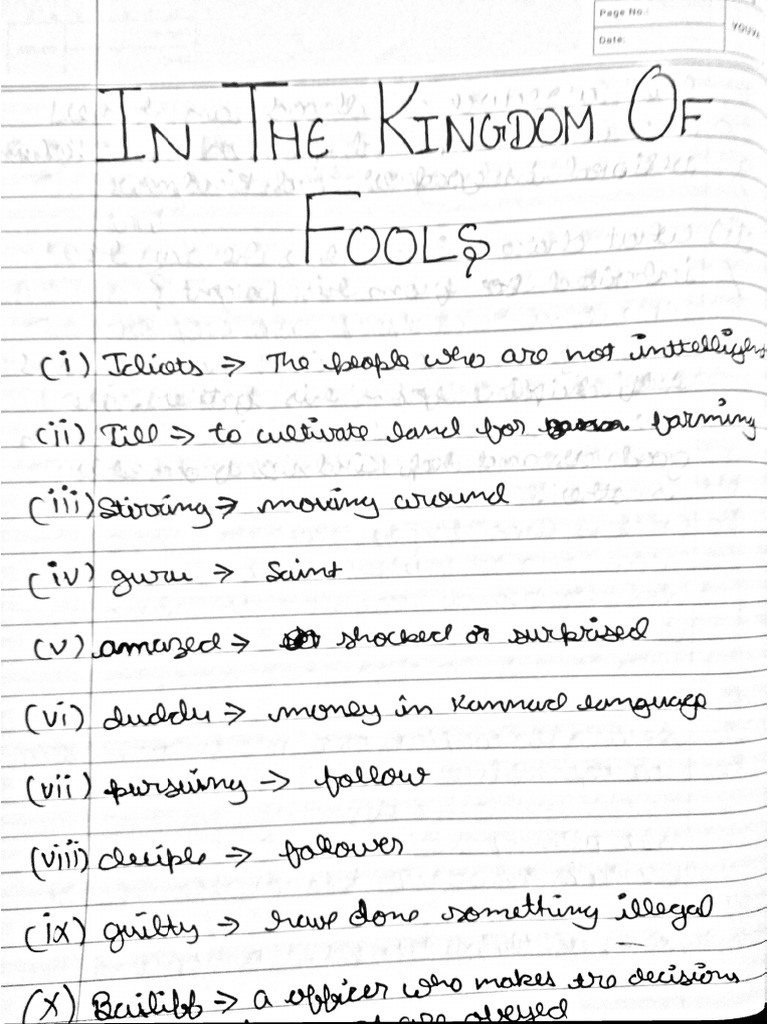 Page No.:
Date:
YOUVA
IN THE KINGDOM OF
FOOLS
(i) Idiots ⇒ The people who are not inttelligen
(ii) Till ⇒ to cultivate land for farming
(iii) Stirring ⇒ moving around
(iv) guru ⇒ Saint
(v) amazed ⇒ shocked or surprised
(vi) duddu ⇒ money in Kannad language
(vii) pursuing ⇒ follow
(viii) deciple ⇒ follower
(ix) guilty ⇒ have done something illegal
(x) Bailiff ⇒ a officer who makes the decisions
are obeyed